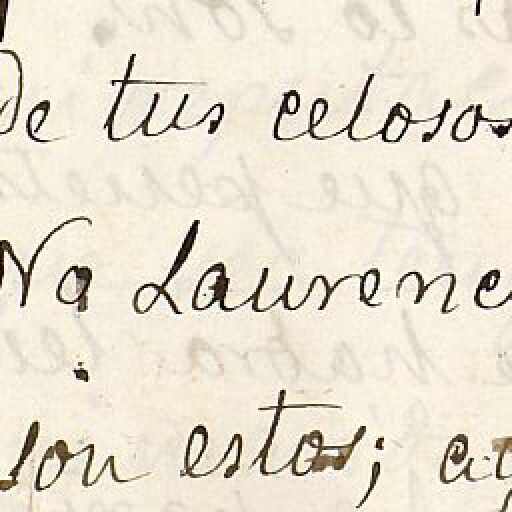 de tus celosos
Na Laurenc
son estos; a